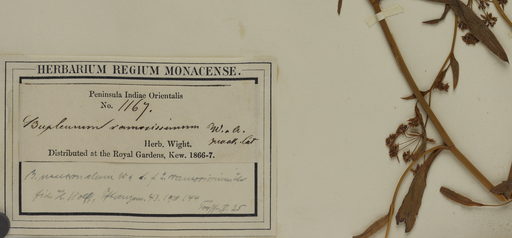 HERBARIUM REGIUM MONACENSE.
Peninsula Indiae Orientalis
No. 1167.
Bupleurum ramosissimum W. & A.
Herb. Wight.
Distributed at the Royal Gardens, Kew. 1866-7.
B. mucronatum W. & A. f. 2. ramosissimum
fide H. Wolff, 43. 1910. 144